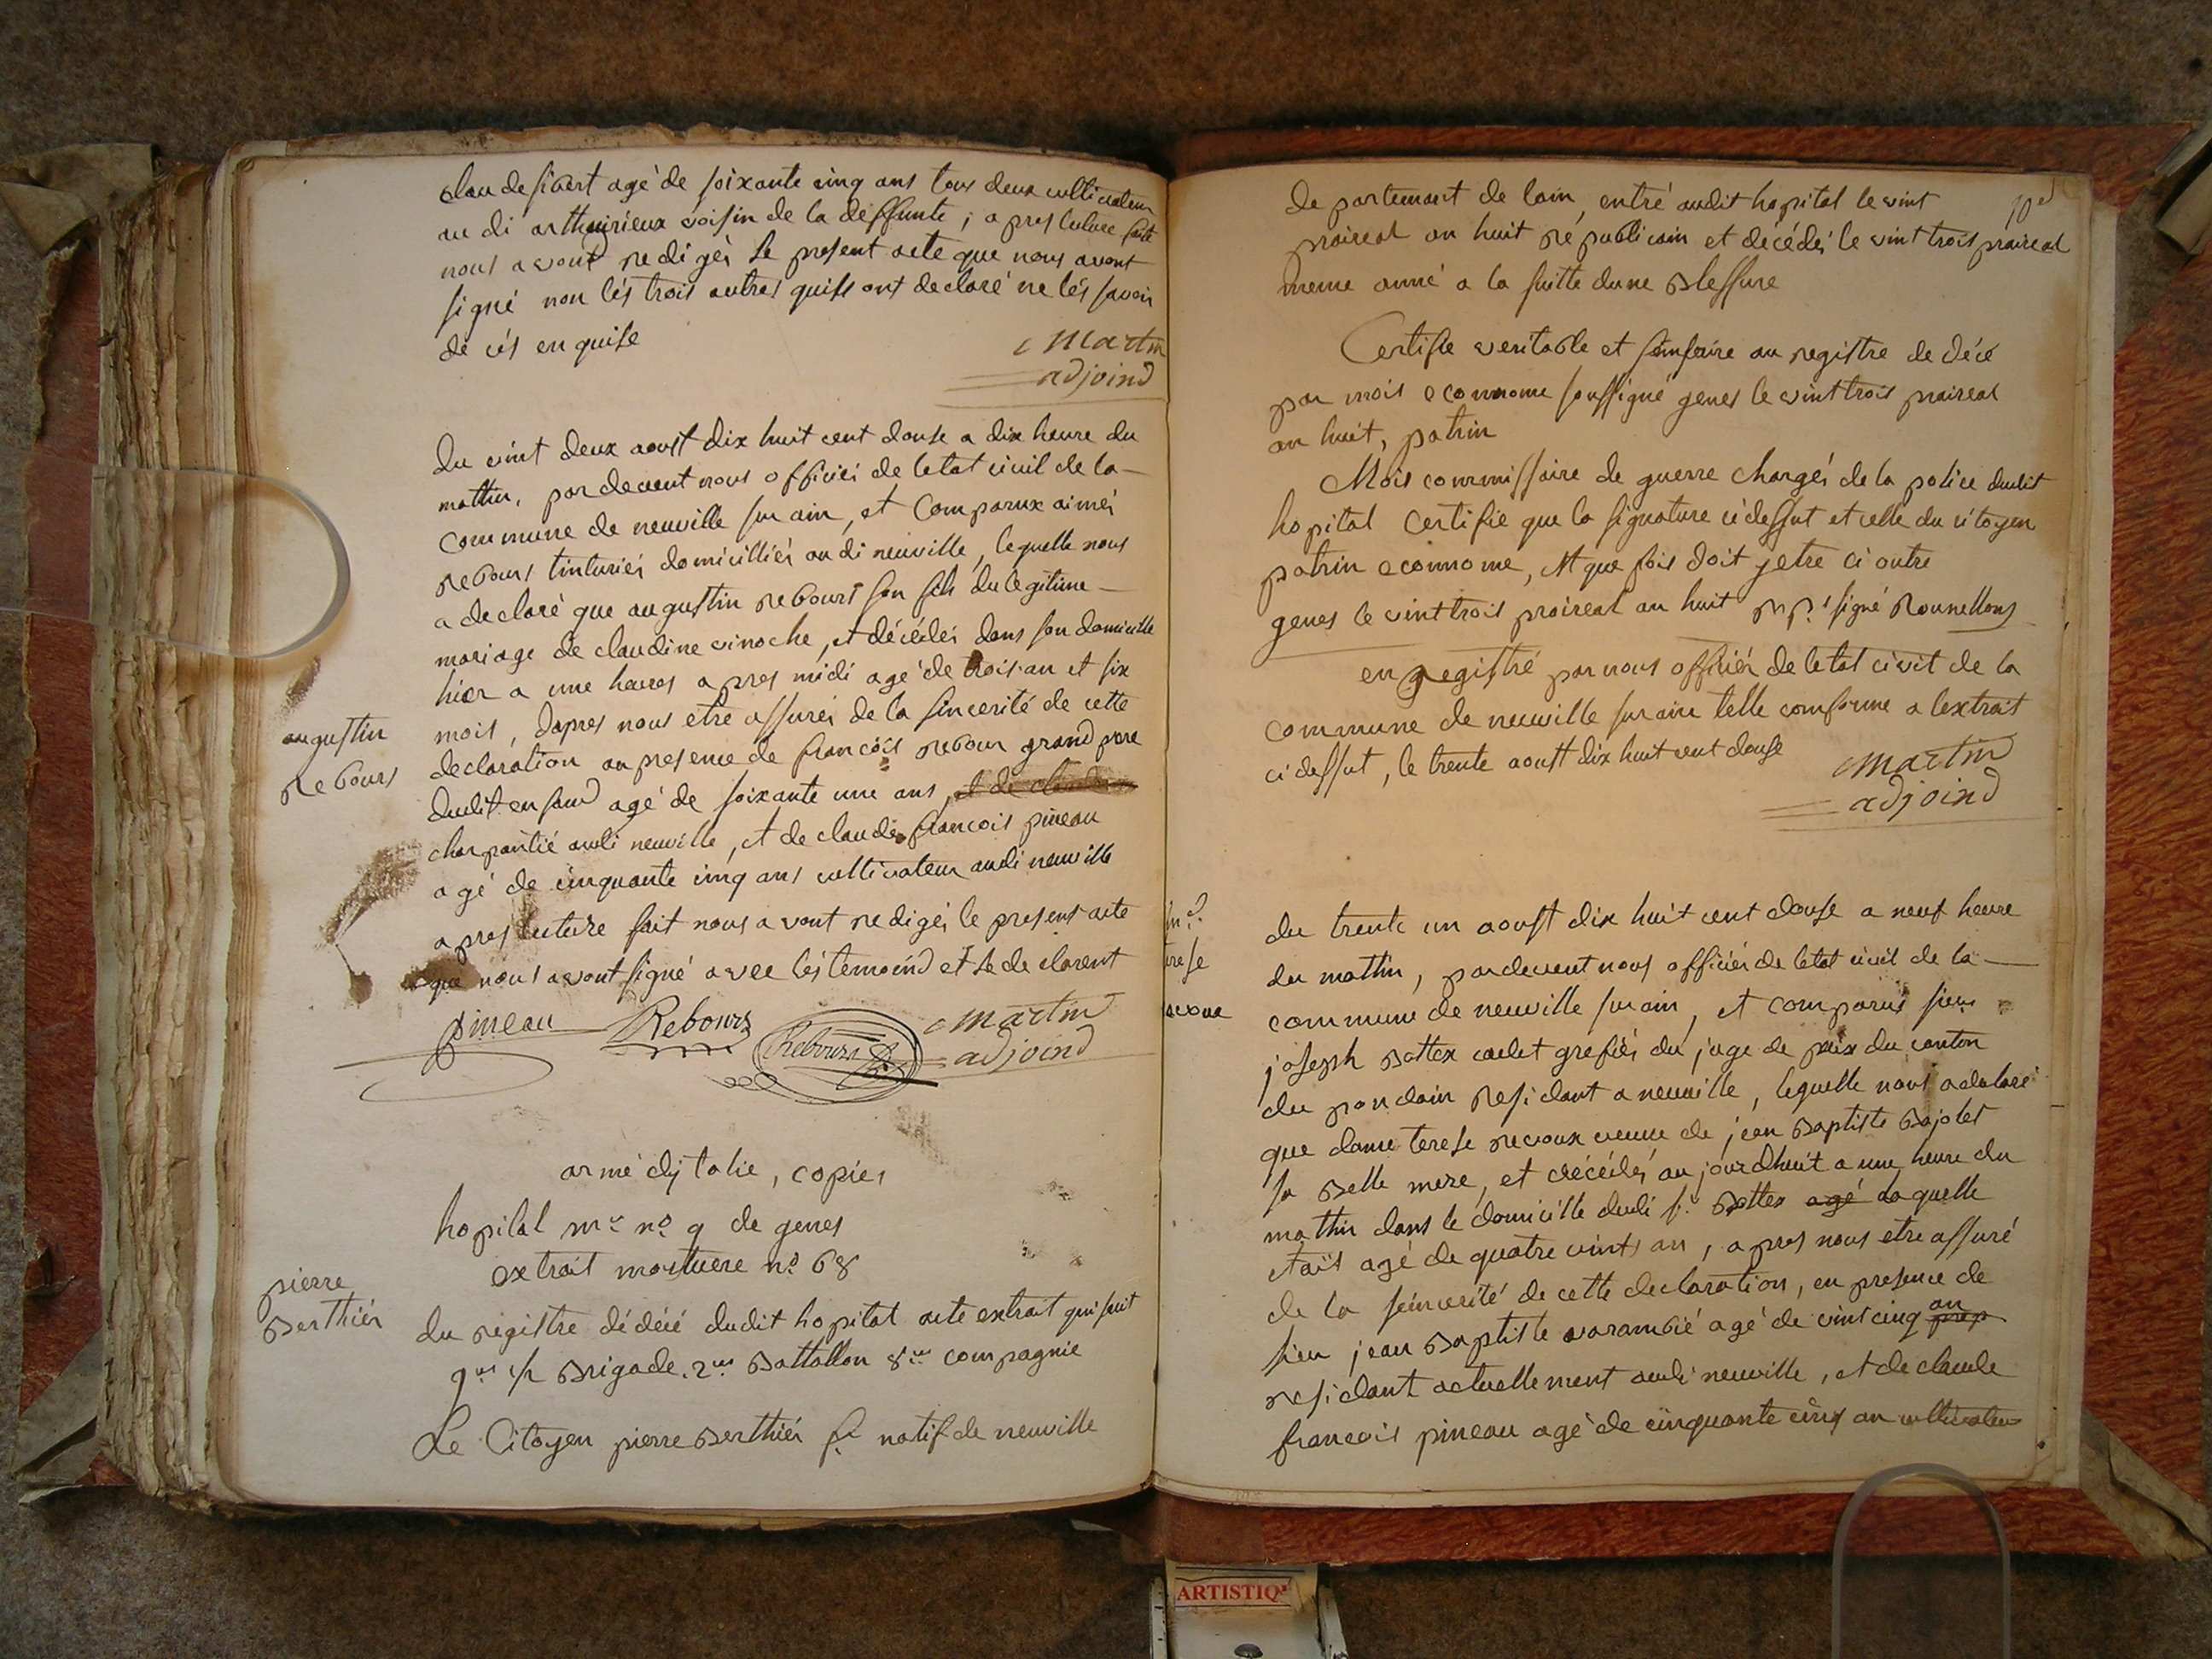 claude sibert agé de soixante cinq ans tous deux cultivateur
au di arthurieux voisin de la deffunte, a pres luture faite
nous avont redigés Le present acte que nous avont
signé non lés trois autres quiss ont declaré ne lés savoir
de cés enquise
Martin
adjoind
du vint deux aoust dix huit cent douse a dix heure du
mattin, pardevent nous officiér de letat civil de la
commune de neuville sur ain, et comparux aimés
Rebours tinturiér domicilliér au di neuville, lequelle nous
a declaré que augustin rebours son fils du legitime
mariage de claudine vinoche, et décédés dans son domicille
hier a une heures apres midi agé de trois an et six
mois, dapres nous etre assurés de la sincerité de cette
declaration an presence de francois rebour grand pere
dudit enfand agé de soixante une ans, et de
charpantié audi neuville, et de claude francois pineau
agé de cinquante cinq ans cultivateur audi neuville
apres luture fait nous avont redigés le present acte
que nous avont signé avec lés temoind et le declarent
augustin
Rebours
pineau Rebours Rebours Martin
adjoind
armé dijtalie, copiés
hopital mre no 9 de genes
extrait mortuere no 68
pierre
Berthiér
du registre dédécé dudit hopital acte extrait qui suit
9me 1/2 Brigade. 2me Battallon 8me compagnie
Le Citoyen pierre Berthiér f. natif de neuville
10e
departemant de lain, entré audit hopital le vint
praireal an huit républicain et décédés le vint trois praireal
meme anné a la suitte dune Blessure
Certifie veritable et semfoire au registre de décé
par mois econnome soussigné genes le vint trois praireal
an huit, patrin
Mois commissaire de guerre chargés de la police dudit
hopital certifie que la signature ci dessut et celle du citoyen
patrin econnome, et que fois doit y etre ci outre
genes le vint trois praireal an huit signé Rounellons
enregistré par nous officiér de letat civil de la
commune de neuville sur ain telle comforme a lextrait
ci dessut, le trente aoust dix huit cent douse
Martin
adjoind
du trente un aoust dix huit cent douse a neuf heure
du mattin, pardevent nous officiér de letat civil de la
commune de neuville sur ain, et comparus sieur
joseph Battex cadet grefiér du juge de paix du canton
du pon dain residant a neuville, lequelle nous a declaré
que dame terese revoux veuve de jean Baptiste Bajolet
sa Belle mere, et décédés au jourdhuit a une heure du
mattin dans le domicille dudi s. Battex agé laquelle
etait agé de quatre vints an, a pres nous etre assuré
de la seincerité de cette declaration, en presence de
sieu jean Baptiste varambié agé de vint cinq prep an
residant actuellement audi neuville, et de claude
francois pineau agé de cinquante cinq an cultivateur
ARTISTIQ